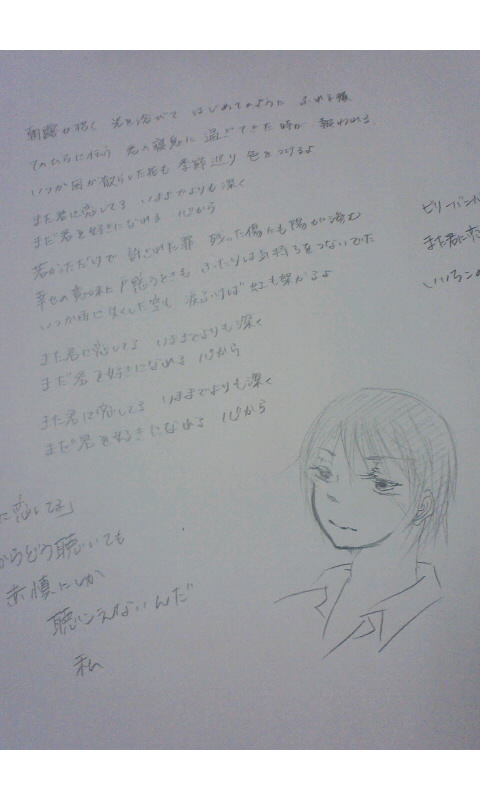 朝露が招く 光を浴びて はじめてのように ふれる頬
てのひらに伝う 君の寝息に 過ごしてきた時が 報われる
いつか風が散らした花も 季節巡り 色をつけるよ
また君に恋してる いままでよりも深く
まだ君を好きになれる 心から
若かっただけで 許された罪 残った傷にも 陽が滲む
幸せの意味に戸惑うときも ふたりは気持ちをつないでた
いつか雨に失くした空も 涙ふけば 虹も架かるよ
また君に恋してる いままでよりも深く
まだ君を好きになれる 心から
また君に恋してる いままでよりも深く
まだ君を好きになれる 心から
ビリーバンバン
また君に
いいちこの
に恋してる」
からどう聴いても
赤慎にしか
聴こえないんだ
私